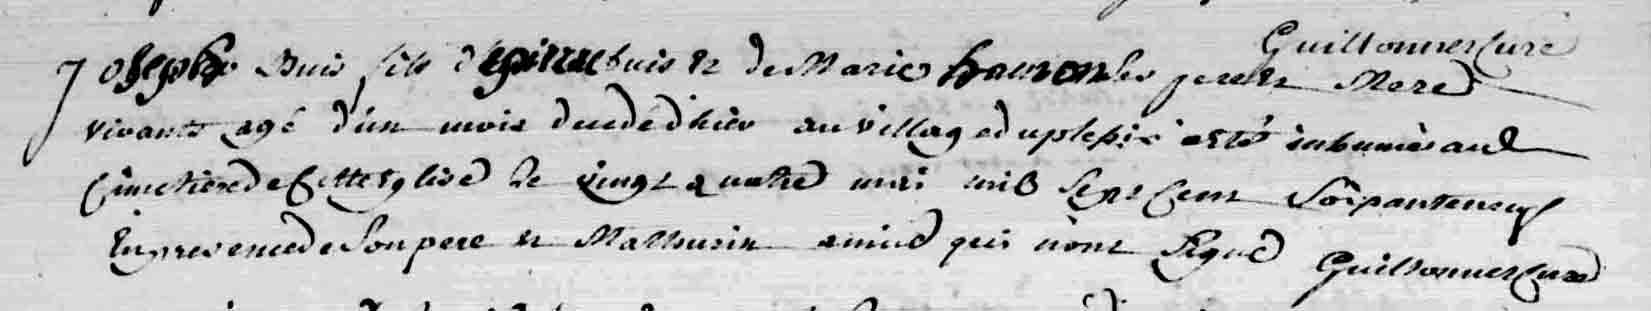 Guillonner Curé
Joseph Buis fils de pierre buis et de Marie hauron ses pere et Mere
vivants agé d'un mois decedé d'hier au village duplessis esté inhumé au
cimetiere de Cette Eglise le vingt quatre mai mil Sept Cent Soixante neuf
En presence de Son pere et Mathurin qui n'ont Signé Guillonner Curé